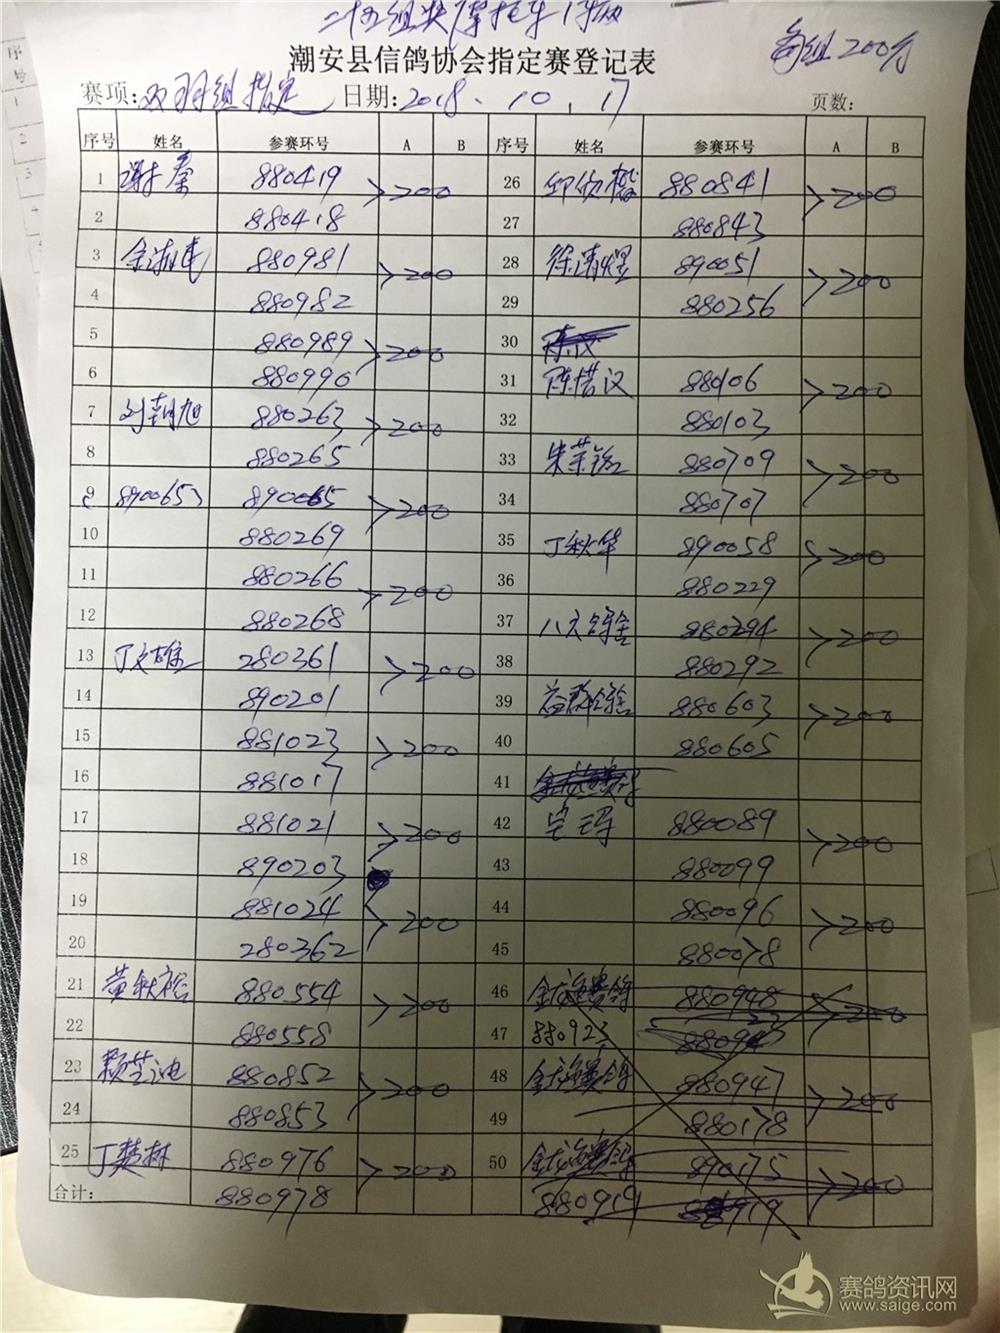 二十五组奖摩托车1辆
潮安县信鸽协会指定赛登记表
每组200分
赛项:双羽组指定 日期:2018.10.17 页数:
序号 姓名 参赛环号 A B 序号 姓名 参赛环号 A B
1 谢秦 880419 >200 26 880841 >200
2 880418 27 880843
3 880981 >200 28 徐清煜 890051 >200
4 880982 29 880256
5 880989 >200 30
6 880990 31 陈惜汉 880106 >200
7 刘朝旭 880263 >200 32 880103
8 880265 33 朱荣 880709 >200
9 890065 890065 >200 34 880707
10 880269 35 丁秋华 890058 >200
11 880266 >200 36 880229
12 880268 37 八方鸽舍 880294 >200
13 丁文雄 280361 >200 38 880292
14 890201 39 益群鸽舍 880603 >200
15 881023 >200 40 880605
16 881017 41
17 881021 >200 42 880089 >200
18 890203 43 880099
19 881024 >200 44 880096 >200
20 280362 45 880078
21 黄秋裕 880554 >200 46 金龙海赛鸽 880948 >200
22 880558 47 880923
23 赖芝迪 880852 >200 48 金龙海赛鸽 880947 >200
24 880853 49 880178
25 丁楚林 880976 >200 50 金龙海赛鸽 890175 >200
合计: 880978 880919
赛鸽资讯网
www.saige.com